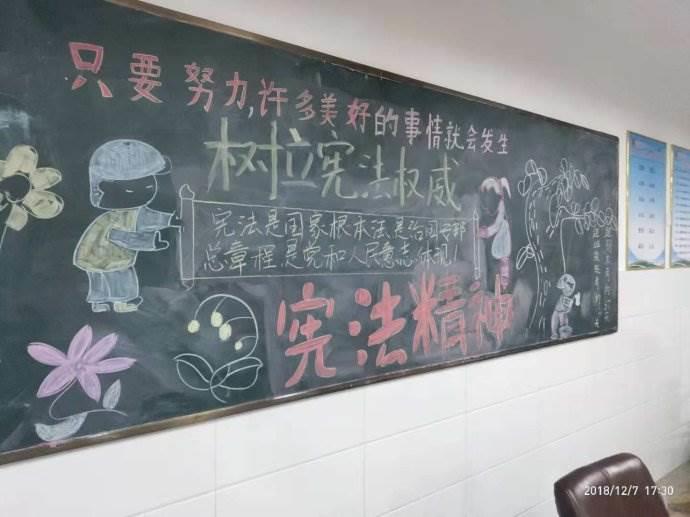 只要努力,许多美好的事情就会发生
树立宪法权威
宪法是国家根本法是治国安邦
总章程,是党和人民意志体现!
宪法精神
2018/12/7 17:30